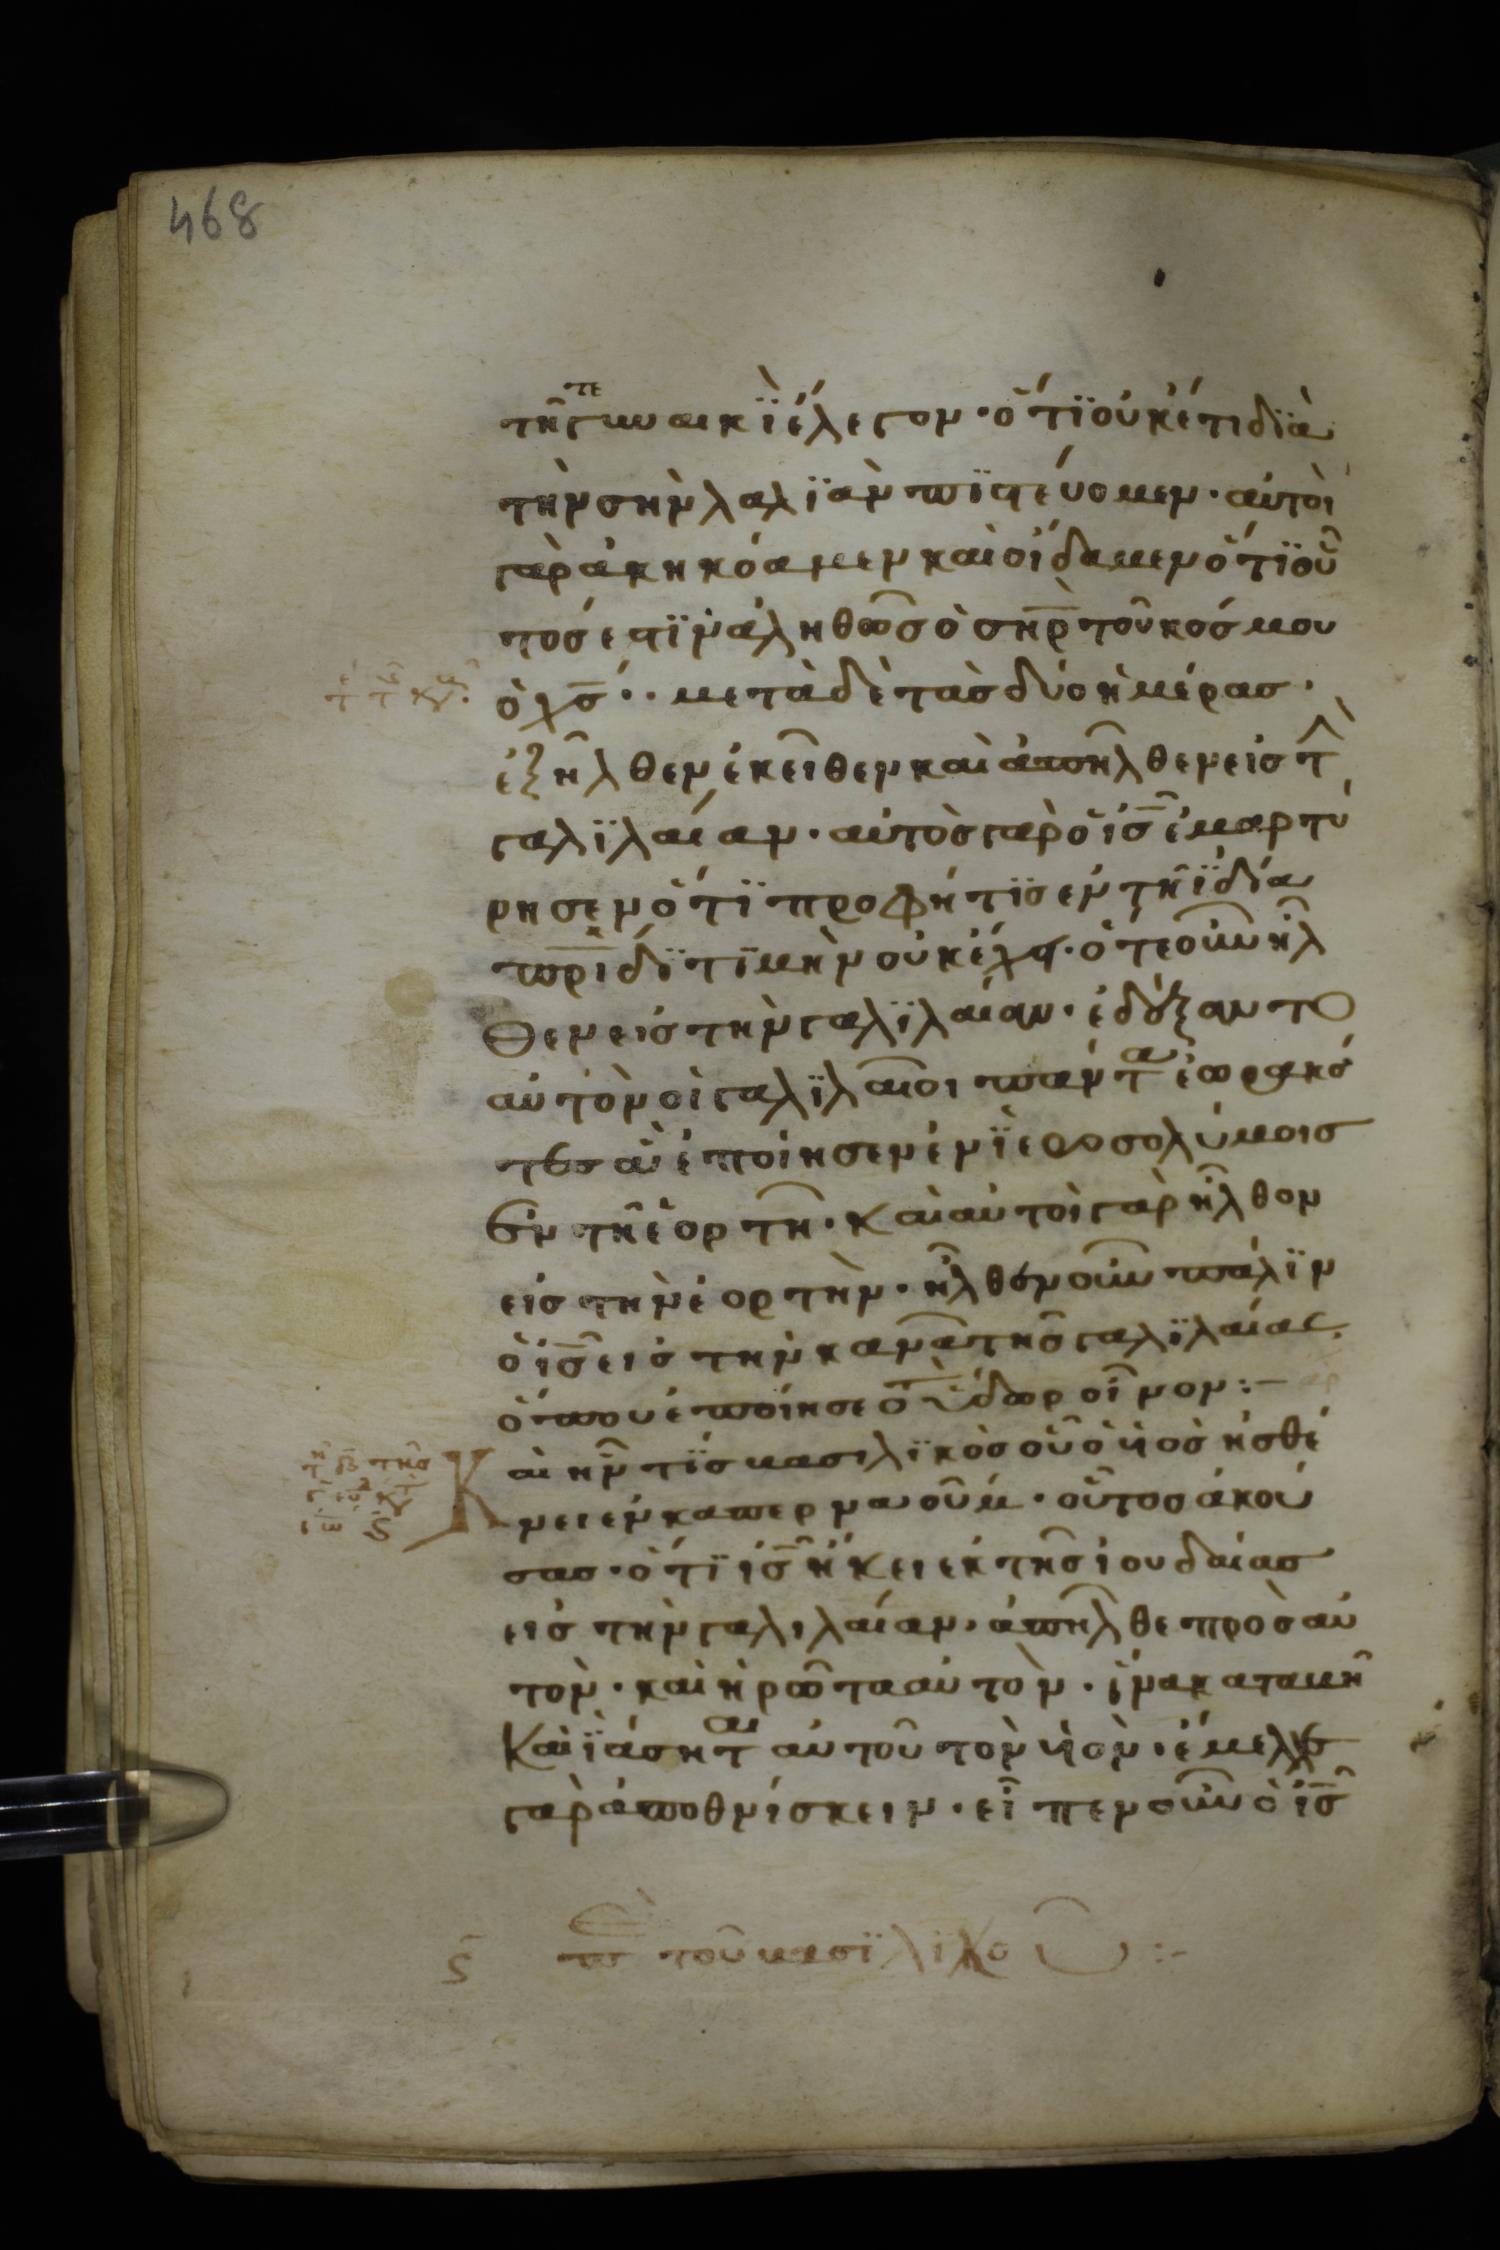 468
τε
τῆ γυναικῒ ἔλεγον · ὅτϊ οὐκέτι δϊὰ
τὴν σὴν λαλϊὰν πϊστεύομεν · αὐτοὶ
γὰρ ἀκηκόαμεν καὶ οἴδαμεν ὅτϊ οὗ
τος ἐστϊν ἀληθῶς ὁ σηρ̅ τοῦ κόσμου
ὁ χς̅ ·· μετὰ δὲ τὰς δύο ἡμέρας ·
ἐξῆλθεν ἐκεῖθεν καὶ ἀπῆλθεν εἰς τ
γαλϊλαίαν · αὐτὸς γὰρ ὁ ις̅ ἐμαρτύ
ρησεν ὅτϊ προφήτϊς ἐν τῆ ϊδία
πρ̅ιδϊ τϊμὴν οὐκ ἔχει · ὅτε οὖν ἦλ
θεν εἰς τὴν γαλϊλαίαν · ἐδέξαντο
αὐτὸν οἱ γαλϊλαῖοι πάντα ἑωρακό
τες ἃ ἐποίησεν ἐν ϊεροσολύμοις
ἐν τῆ ἑορτῆ · καὶ αὐτοὶ γὰρ ἦλθον
εἰς τὴν ἑορτὴν · ἦλθεν οὖν πάλϊν
ὁ ις̅ εἰς τὴν κανᾶ τῆς γαλϊλαίας
ὅπου ἐποίησε τὸ ὕδωρ οἶνον :-
Καὶ ἦν τϊς βασιλϊκὸς οὗ ὁ υἱὸς ἠσθέ
νει ἐν καπερναούμ · οὗτος ἀκού
σας · ὅτϊ ις̅ ἥκει ἐκ τῆς ἰουδαίας
εἰς τὴν γαλιλαίαν · ἀπῆλθε πρὸς αὐ
τὸν · καὶ ἠρῶτα αὐτὸν · ἵνα καταβῆ
καὶ ϊάσηται αὐτοῦ τὸν υἱὸν · ἔμελλε
γὰρ ἀποθνίσκειν · εἶπεν οὖν ὁ ις̅
ϛ πε τοῦ βασϊλικοῦ :-